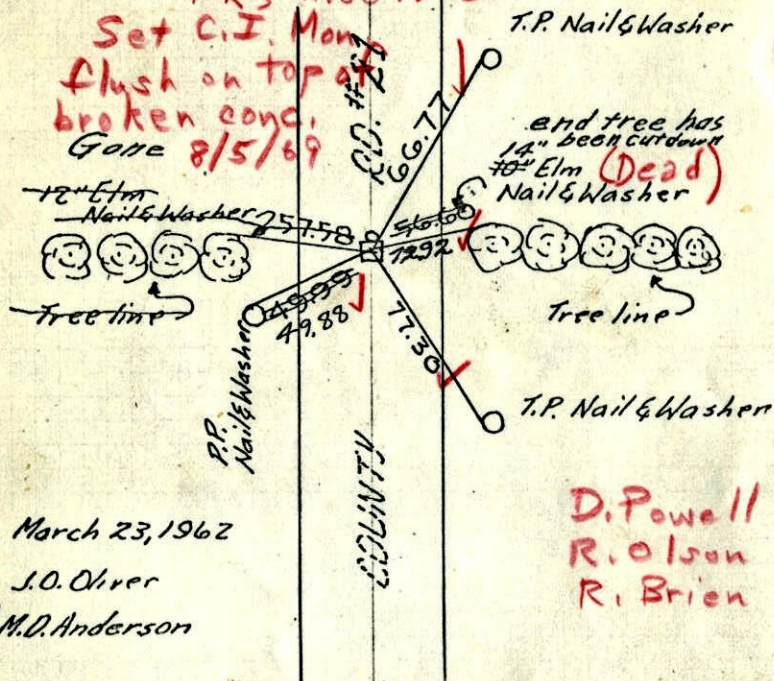 Set C.I. Mon.
flush on top of
broken conc.
Gone 8/5/69
T.P. Nail & Washer
RD. #21
66.77
end tree has
been cut down
14"
10" Elm (Dead)
Nail & Washer
12" Elm
Nail & Washer
257.58
56.60
49.99
49.88
77.30
Tree line
Tree line
P.P.
Nail & Washer
T.P. Nail & Washer
COUNTY
March 23, 1962
J.O. Oliver
M.D. Anderson
D. Powell
R. Olson
R. Brien